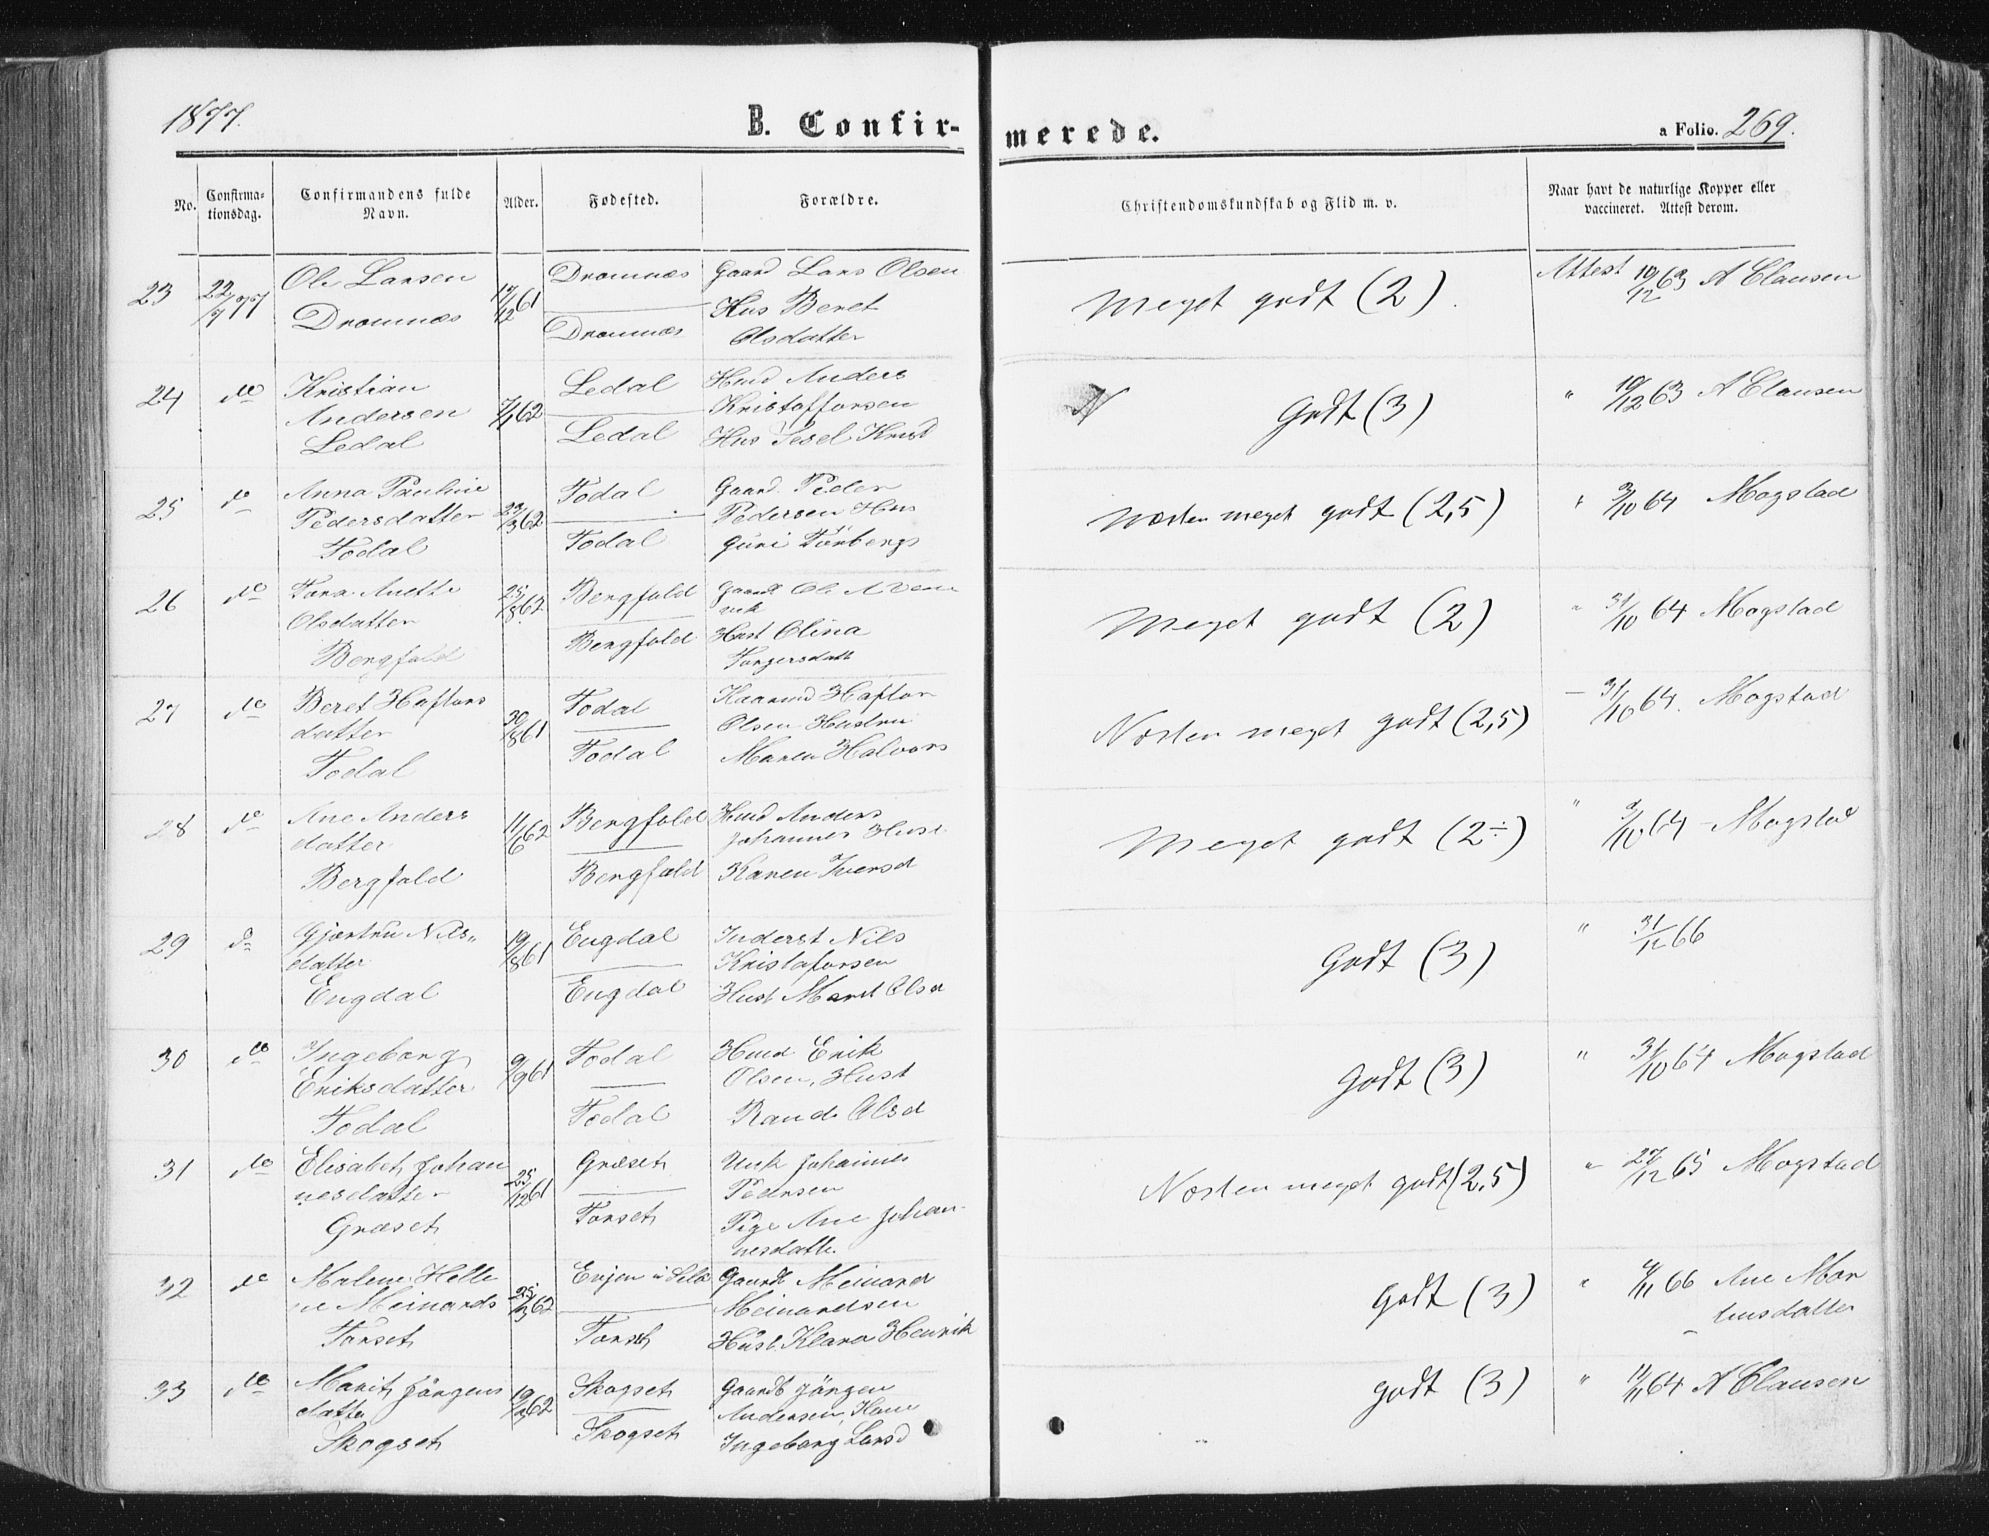 1877.
B. Confir-
merede.
a Folio. 269.
No.
Confirma-
tionsdag.
Confirmandens fulde
Navn.
Alder.
Fødested.
Forældre.
Christendomskundskab og Flid m. v.
Naar havt de naturlige Kopper eller
vaccineret. Attest derom.
23 22/7 77 Ole Larsen
Dromnæs
17/12 61
Dromnæs
Dromnæs
Gaard Lars Olsen
Hus Beret
Olsdatter
Meget godt (2).
Attest 19/12 63 A Clausen
24 do Kristian
Andersen
Ledal
7/1 62
Ledal
Ledal
Hmd Anders
Kristoffersen
Hus Sesel Knud
Godt (3)
" 19/12 63 A Clausen
25 do Anna Pauline
Pedersdatter
Todal
23/3 62
Todal
Todal
Gaard. Peder
Pedersen Hus
Guri Torbergs
Næsten meget godt (2,5)
" /10 64 Mogstad
26 do Tora Anette
Olsdatter
Bergfald
25/8 62
Bergfald
Bergfald
Gaardb Ole
Hust Olina
Torgersdatt
Meget godt (2)
" 31/10 64 Mogstad
27 do Beret Haftors
datter
Todal
30/8 61
Todal
Todal
Kaarmd Haftor
Olsen Hustru
Maren Halvors
Næsten meget godt (2,5)
— 31/10 64. Mogstad
28 do Ane Anders
datter
Bergfald
11/6 62
Bergfald
Bergfald
Hmd Anders
Johannes Hust
Karen Iversd
Meget godt (2÷)
" /10 64 - Mogstad
29 do Gjertru Nils-
datter
Engdal
19/8 61
Engdal
Engdal
Inderst Nils
Kristofersen
Hust Marit Olsd
Godt (3)
" 31/12 66
30 do Ingeborg
Eriksdatter
Todal
9/9 61
Todal
Todal
Hmd Erik
Olsen, Hust
Rand. Olsd
Godt (3)
" 31/10 64 Mogstad
31 do Elisabet Johan
nesdatter
Græset
25/12 61
Græset
Torset
Unk Johannes
Pedersen
Pige Ane Johan-
nesdatte.
Næsten meget godt (2,5)
" 27/12 65 Mogstad
32 do Malene Helle
ne Meinards
Torset
25/3 62
Evjen i
Torset
Gaardb Meinard
Meinardsen
Hust. Klara Henrik
Godt (3)
" /11 66 Ane Mor
tensdatter
33 do Marit Jörgens
datter
Skogset
19/2 62
Skogset
Skogset
Gaardb Jörgen
Andersen, Kone
Ingeborg Larsd
Godt (3)
" 11/11 64 A Clausen